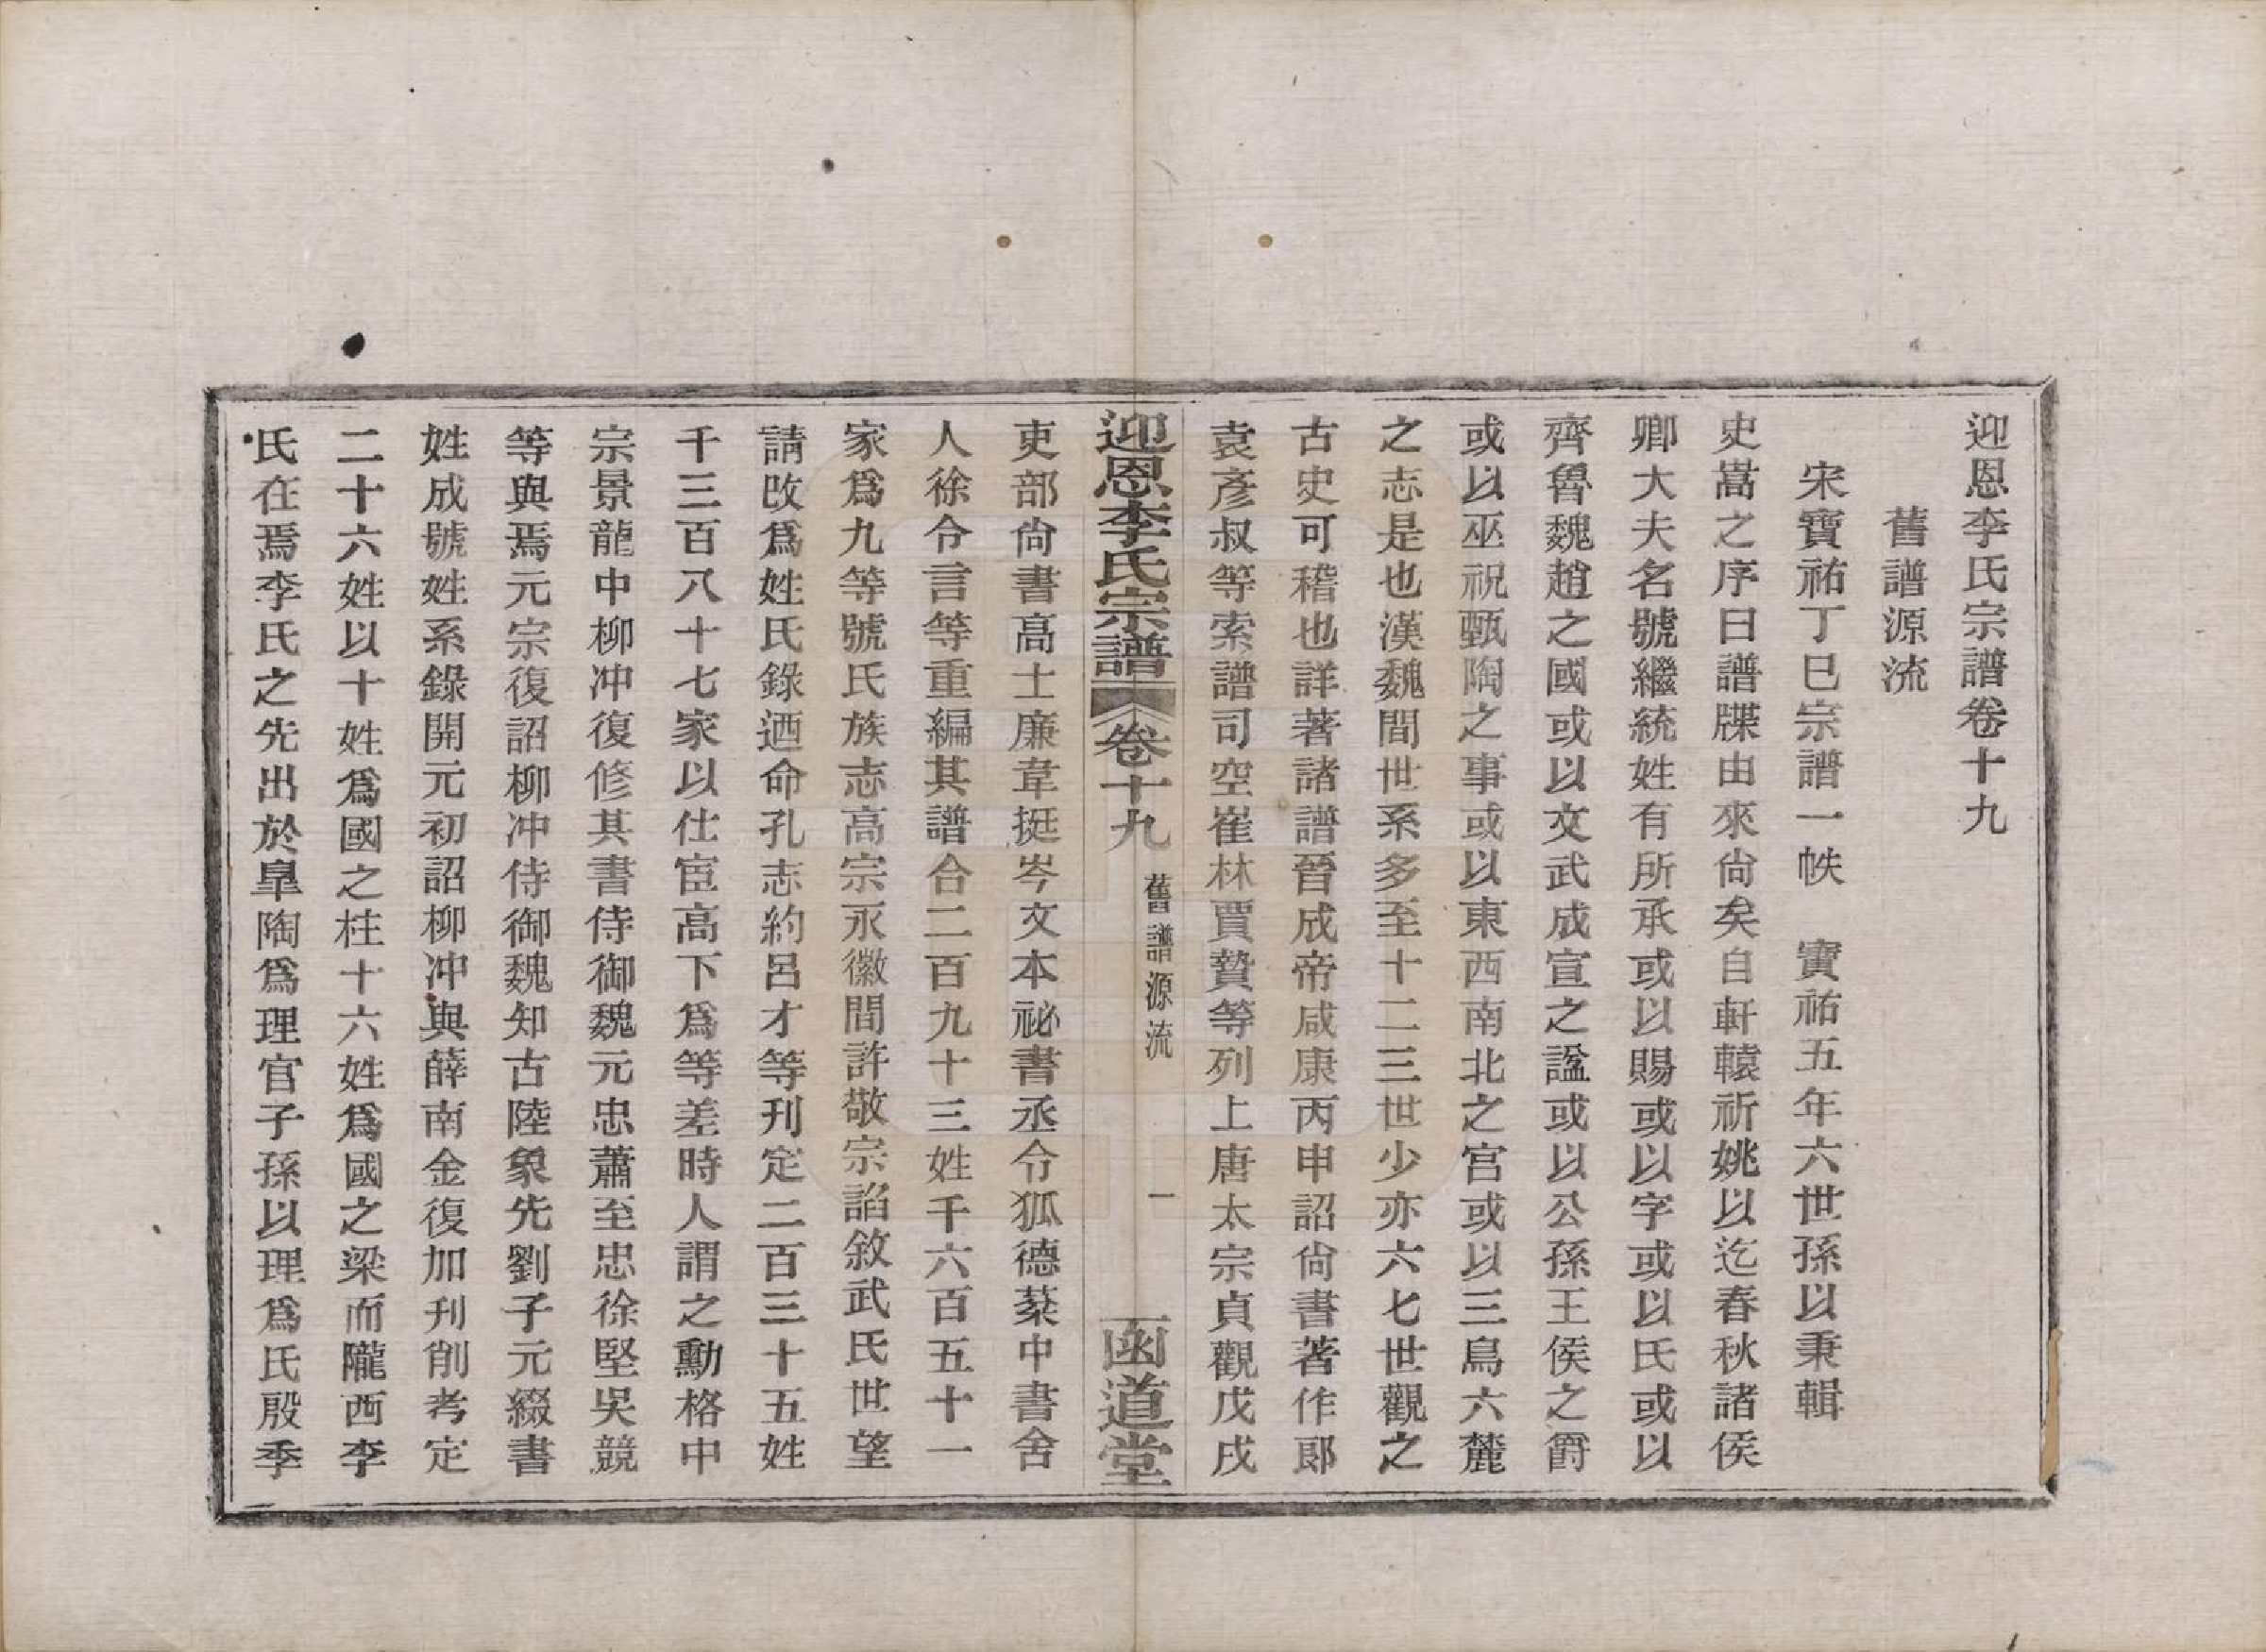 迎恩李氏宗譜卷十九
舊譜源流
宋寶祐丁巳宗譜一帙　寶祐五年六世孫以秉輯
史嵩之序曰譜牒由來尙矣自軒轅祈姚以迄春秋諸侯
卿大夫名號繼統姓有所承或以賜或以字或以氏或以
齊魯魏趙之國或以文武成宣之諡或以公孫王侯之爵
或以巫祝甄陶之事或以東西南北之宮或以三鳥六麓
之志是也漢魏間世系多至十二三世少亦六七世觀之
古史可稽也詳著諸譜晉成帝咸康丙申詔尙書著作郞
袁彥叔等索譜司空崔林賈贊等列上唐太宗貞觀戊戌
迎恩李氏宗譜　卷十九　舊譜源流　一　函道堂
吏部尙書高士廉韋挺岑文本祕書丞令狐德棻中書舍
人徐令言等重編其譜合二百九十三姓千六百五十一
家爲九等號氏族志高宗永徽間許敬宗諂敘武氏世望
請改爲姓氏錄迺命孔志約呂才等刊定二百三十五姓
千三百八十七家以仕宦高下爲等差時人謂之勳格中
宗景龍中柳冲復修其書侍御魏元忠蕭至忠徐堅吳競
等與焉元宗復詔柳冲侍御魏知古陸象先劉子元綴書
姓成號姓系錄開元初詔柳冲與薛南金復加刊削考定
二十六姓以十姓爲國之柱十六姓爲國之梁而隴西李
氏在焉李氏之先出於臯陶爲理官子孫以理爲氏殷季